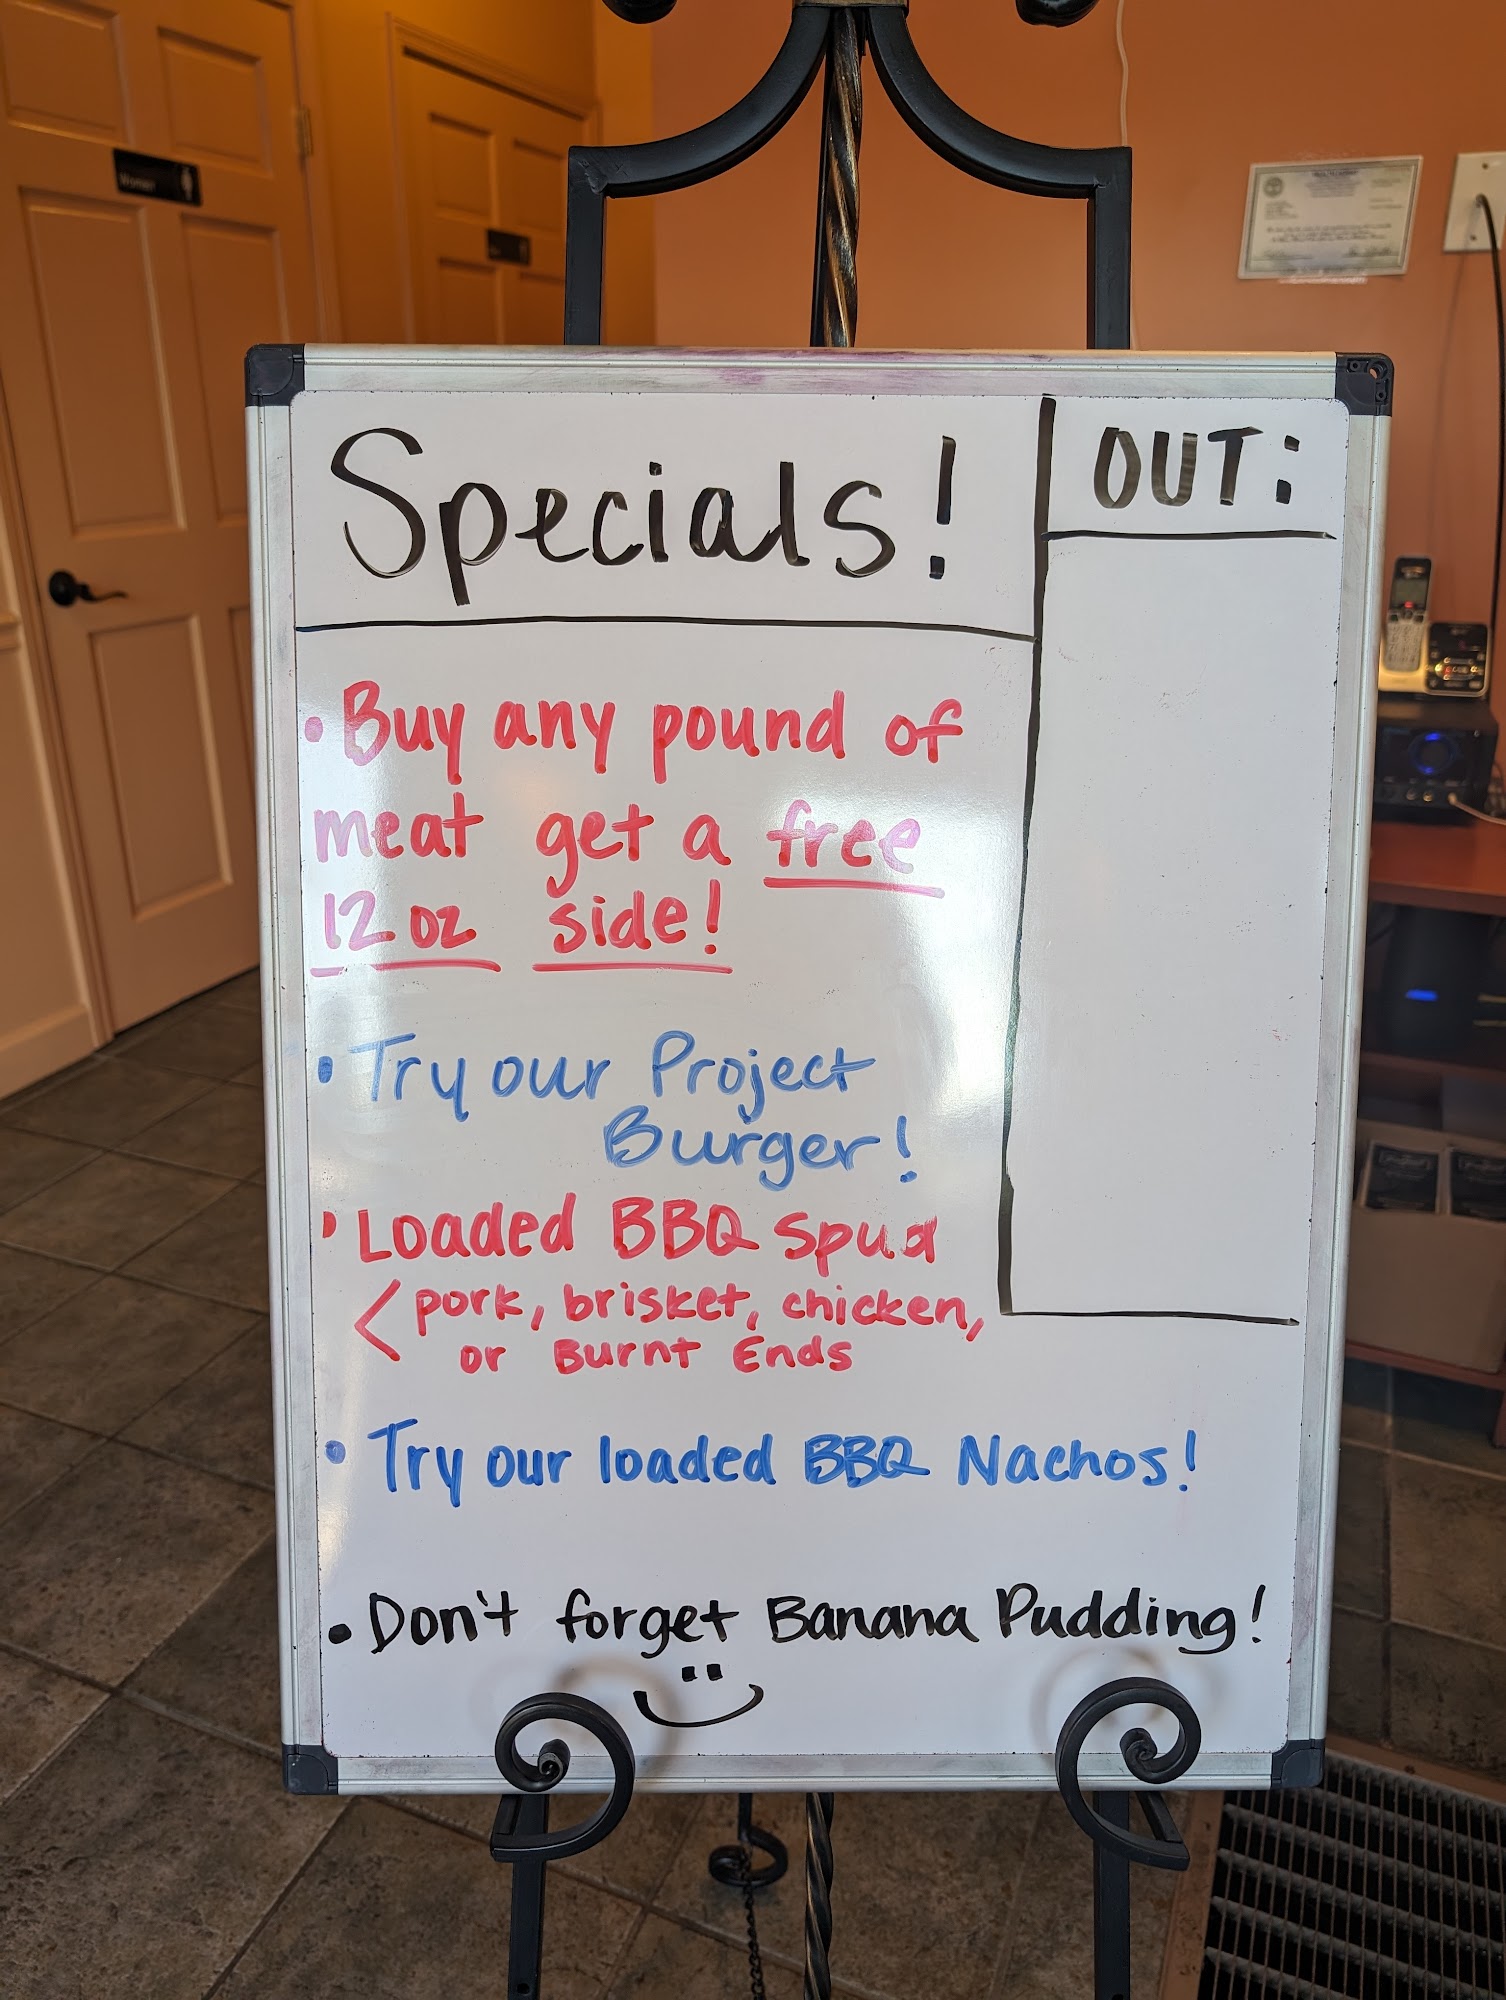 Women
Specials!
OUT:
• Buy any pound of
meat get a free
12 oz side!
• Try our Project
Burger!
• Loaded BBQ Spud
< pork, brisket, chicken,
or Burnt Ends
• Try our loaded BBQ Nachos!
• Don't forget Banana Pudding!